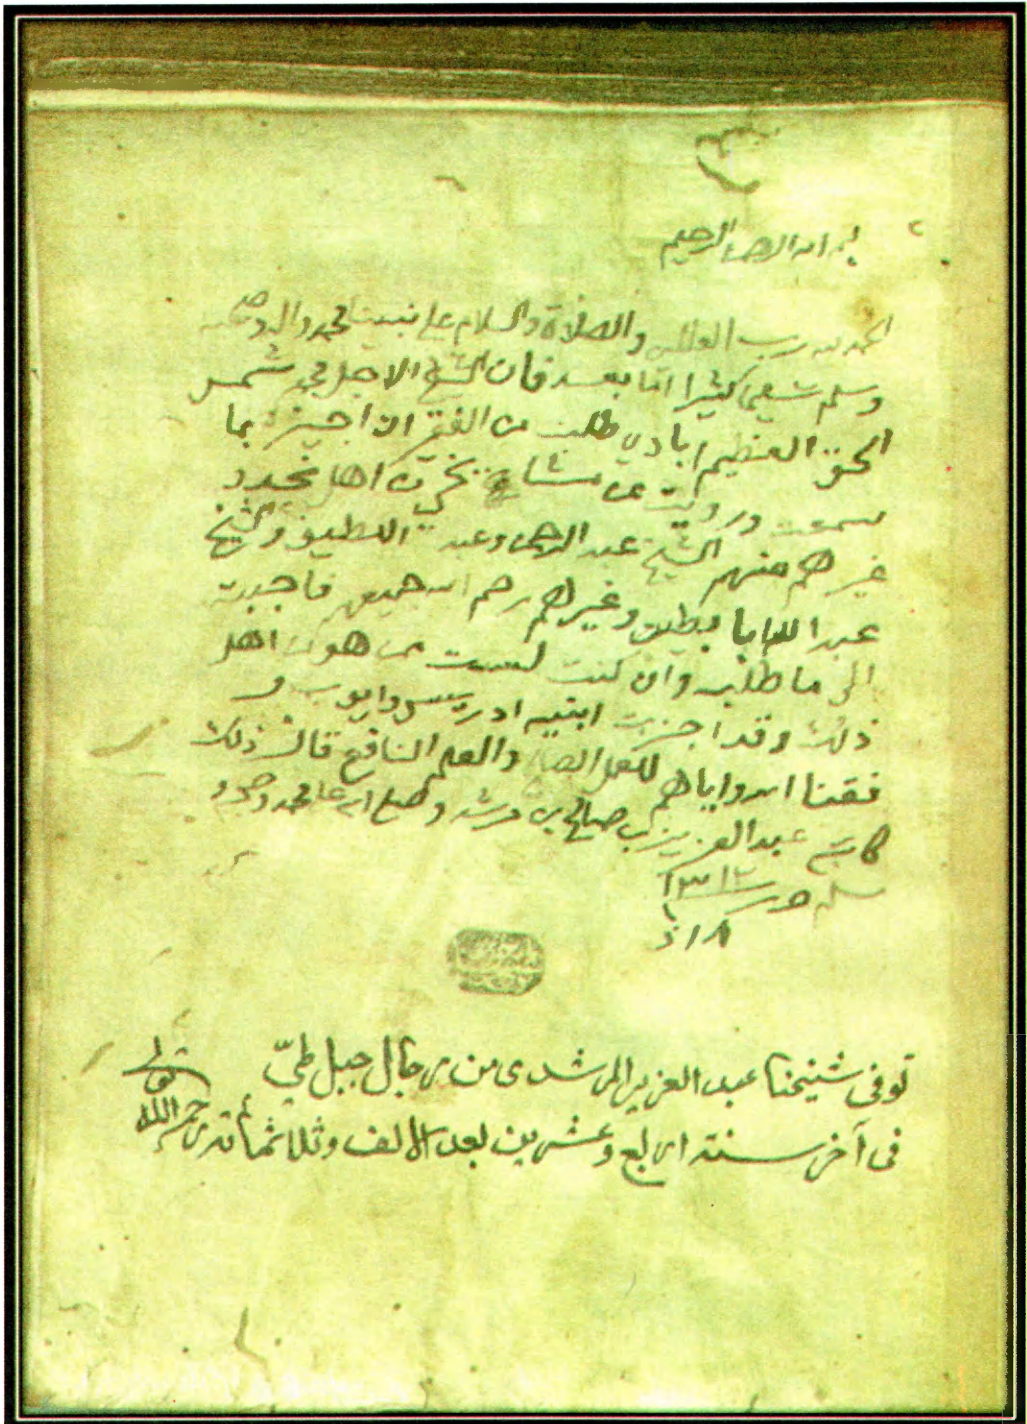 بسم الله الرحمن الرحيم
الحمد لله رب العلمين والصلاة والسلام على نبينا محمد واله وصحبه
وسلم تسليما كثيرا اما بعد فان الشيخ الاجل محمد شمس
الحق العظيم ابادي طلب من الفقير ان اجيزه بما
سمعت ورويت عن مشايخي من اهل نجد و
غيرهم منهم الشيخ عبد الرحمن وعبد اللطيف والشيخ
عبد الله ابا بطين وغيرهم رحم الله جميعهم فاجبته
الى ما طلبه وان كنت لست من هو من اهل
ذلك وقد اجزت ابنيه ادريس وايوب و
فقنا الله واياهم للعمل الصالح والعلم النافع قال ذلك
كاتبه عبد العزيز بن صالح بن مرشد وصلى الله على محمد وصحبه و
سلم حرر ١٣١٢
توفى شيخنا عبد العزيز المرشدى من رجال جبل طيّ
فى آخر سنة اربع وعشرين بعد الالف وثلاثمائة رحمه الله تعالى